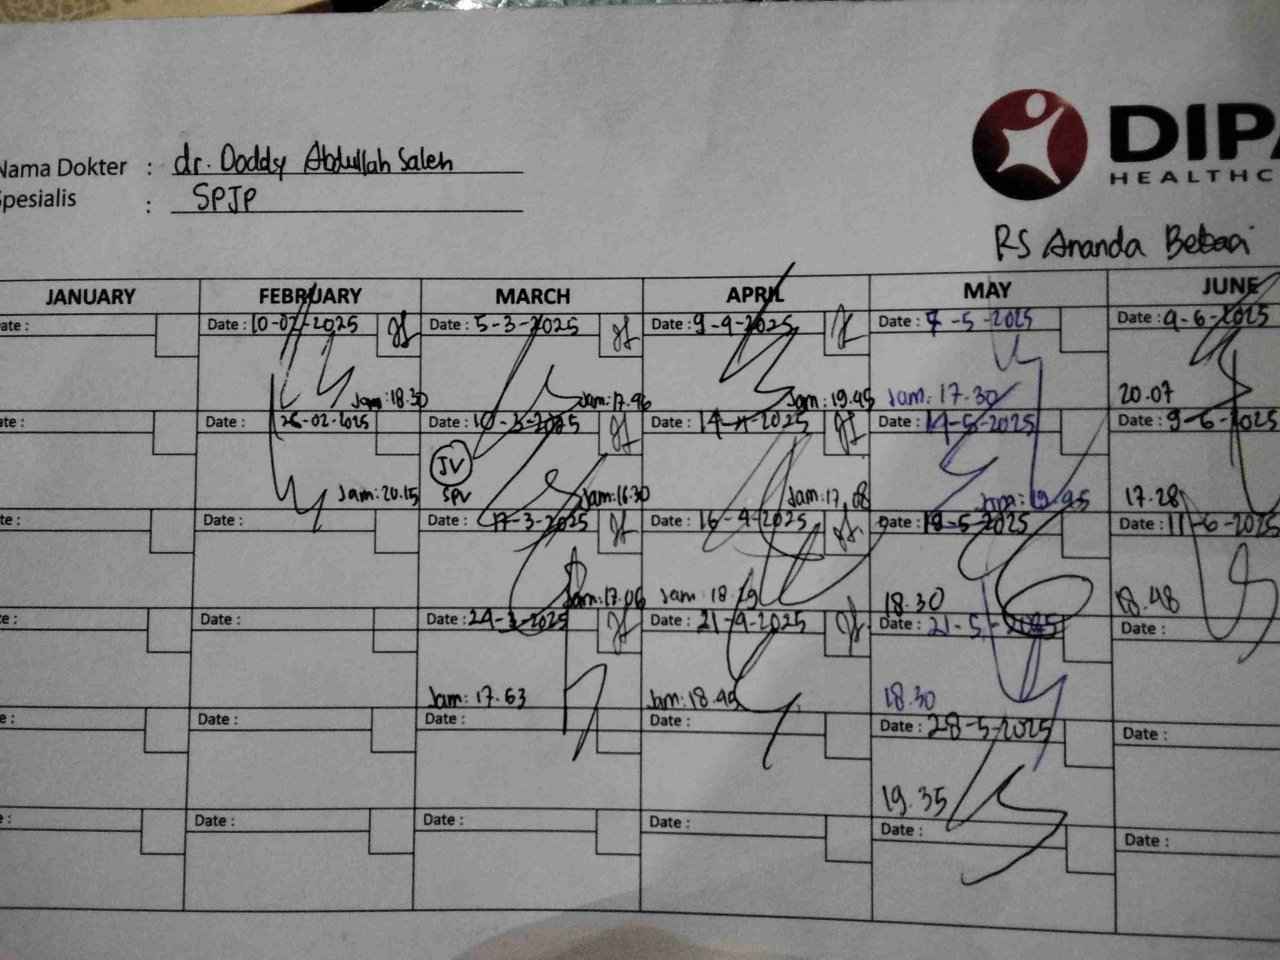 DIPA
HEALTHC
Nama Dokter : dr. Doddy Abdullah Saleh
Spesialis : SPJP
RS Ananda Bekasi
JANUARY FEBRUARY MARCH APRIL MAY JUNE
ate : Date : 10-02-2025 Date : 5-3-2025 Date : 9-4-2025 Date : 7-5-2025 Date : 4-6-2025
Jam: 18.30 Jam: 17.46 Jam: 19.45 Jam: 17.30 20.07
te : Date : 26-02-2025 Date : 10-3-2025 Date : 14-4-2025 Date : 14-5-2025 Date : 9-6-2025
JV
SPV
Jam: 20.15 Jam: 16.30 Jam: 17.08 Jam: 19.45 17.28
te : Date : Date : 17-3-2025 Date : 16-4-2025 Date : 19-5-2025 Date : 11-6-2025
Jam: 17.06 Jam: 18.29 18.30 18.48
e : Date : Date : 24-3-2025 Date : 21-4-2025 Date : 21-5-2025 Date :
Jam: 17.63 Jam: 18.49 18.30
e : Date : Date : Date : Date : 28-5-2025 Date :
19.35
: Date : Date : Date : Date : Date :